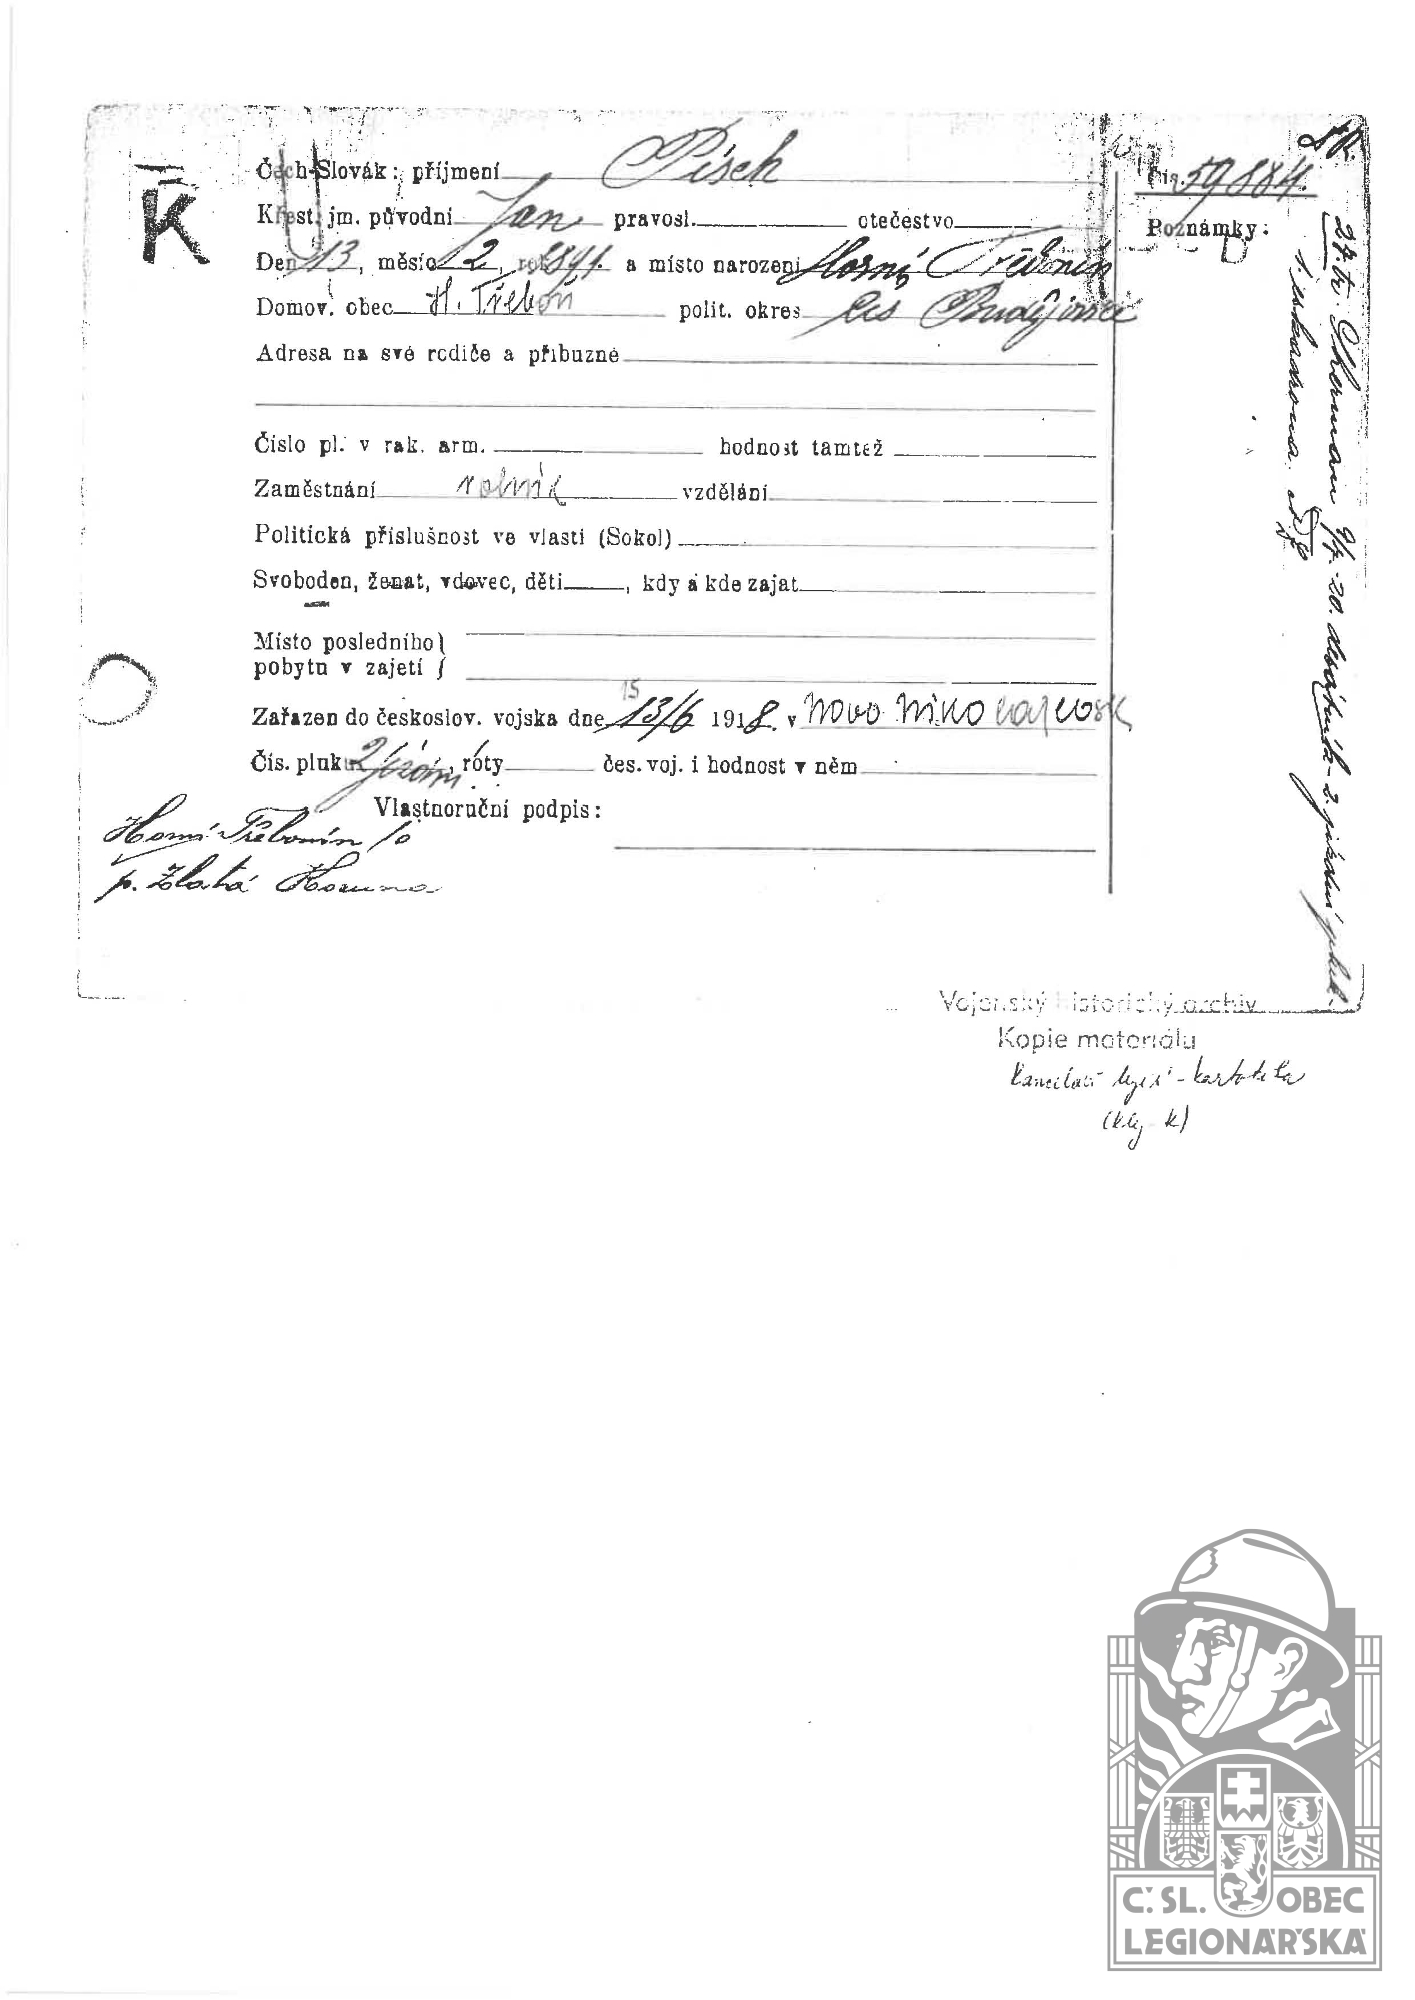 K
Čech-Slovák: příjmení Písch
Křest. jm. původní Jan pravosl. otečestvo
Den 13, měsíc 2, rok 1891. a místo narození Horní Třebonín
Domov. obec H. Třeboň polit. okres Čes Budějovice
Adresa na své rodiče a příbuzné
Číslo pl. v rak. arm. hodnost tamtéž
Zaměstnání rolník vzdělání
Politická příslušnost ve vlasti (Sokol)
Svoboden, ženat, vdovec, děti, kdy a kde zajat
Místo posledního
pobytu v zajetí
15
Zařazen do českoslov. vojska dne 13/6 1918. v Novo Nikolajevsk
Čís. pluku 2 jízdní, róty čes. voj. i hodnost v něm
Vlastnoruční podpis:
Horní Třebonín
p. Zlatá Koruna
Čís. 59884.
Poznámky:
27. tr. Sherman 9/7.20. desátník - 2. jízdní pluk.
1. eskadrona.
Vojenský historický archiv
Kopie materiálu
Kancelář legií - kartotéka
ČSL. OBEC
LEGIONÁŘSKÁ